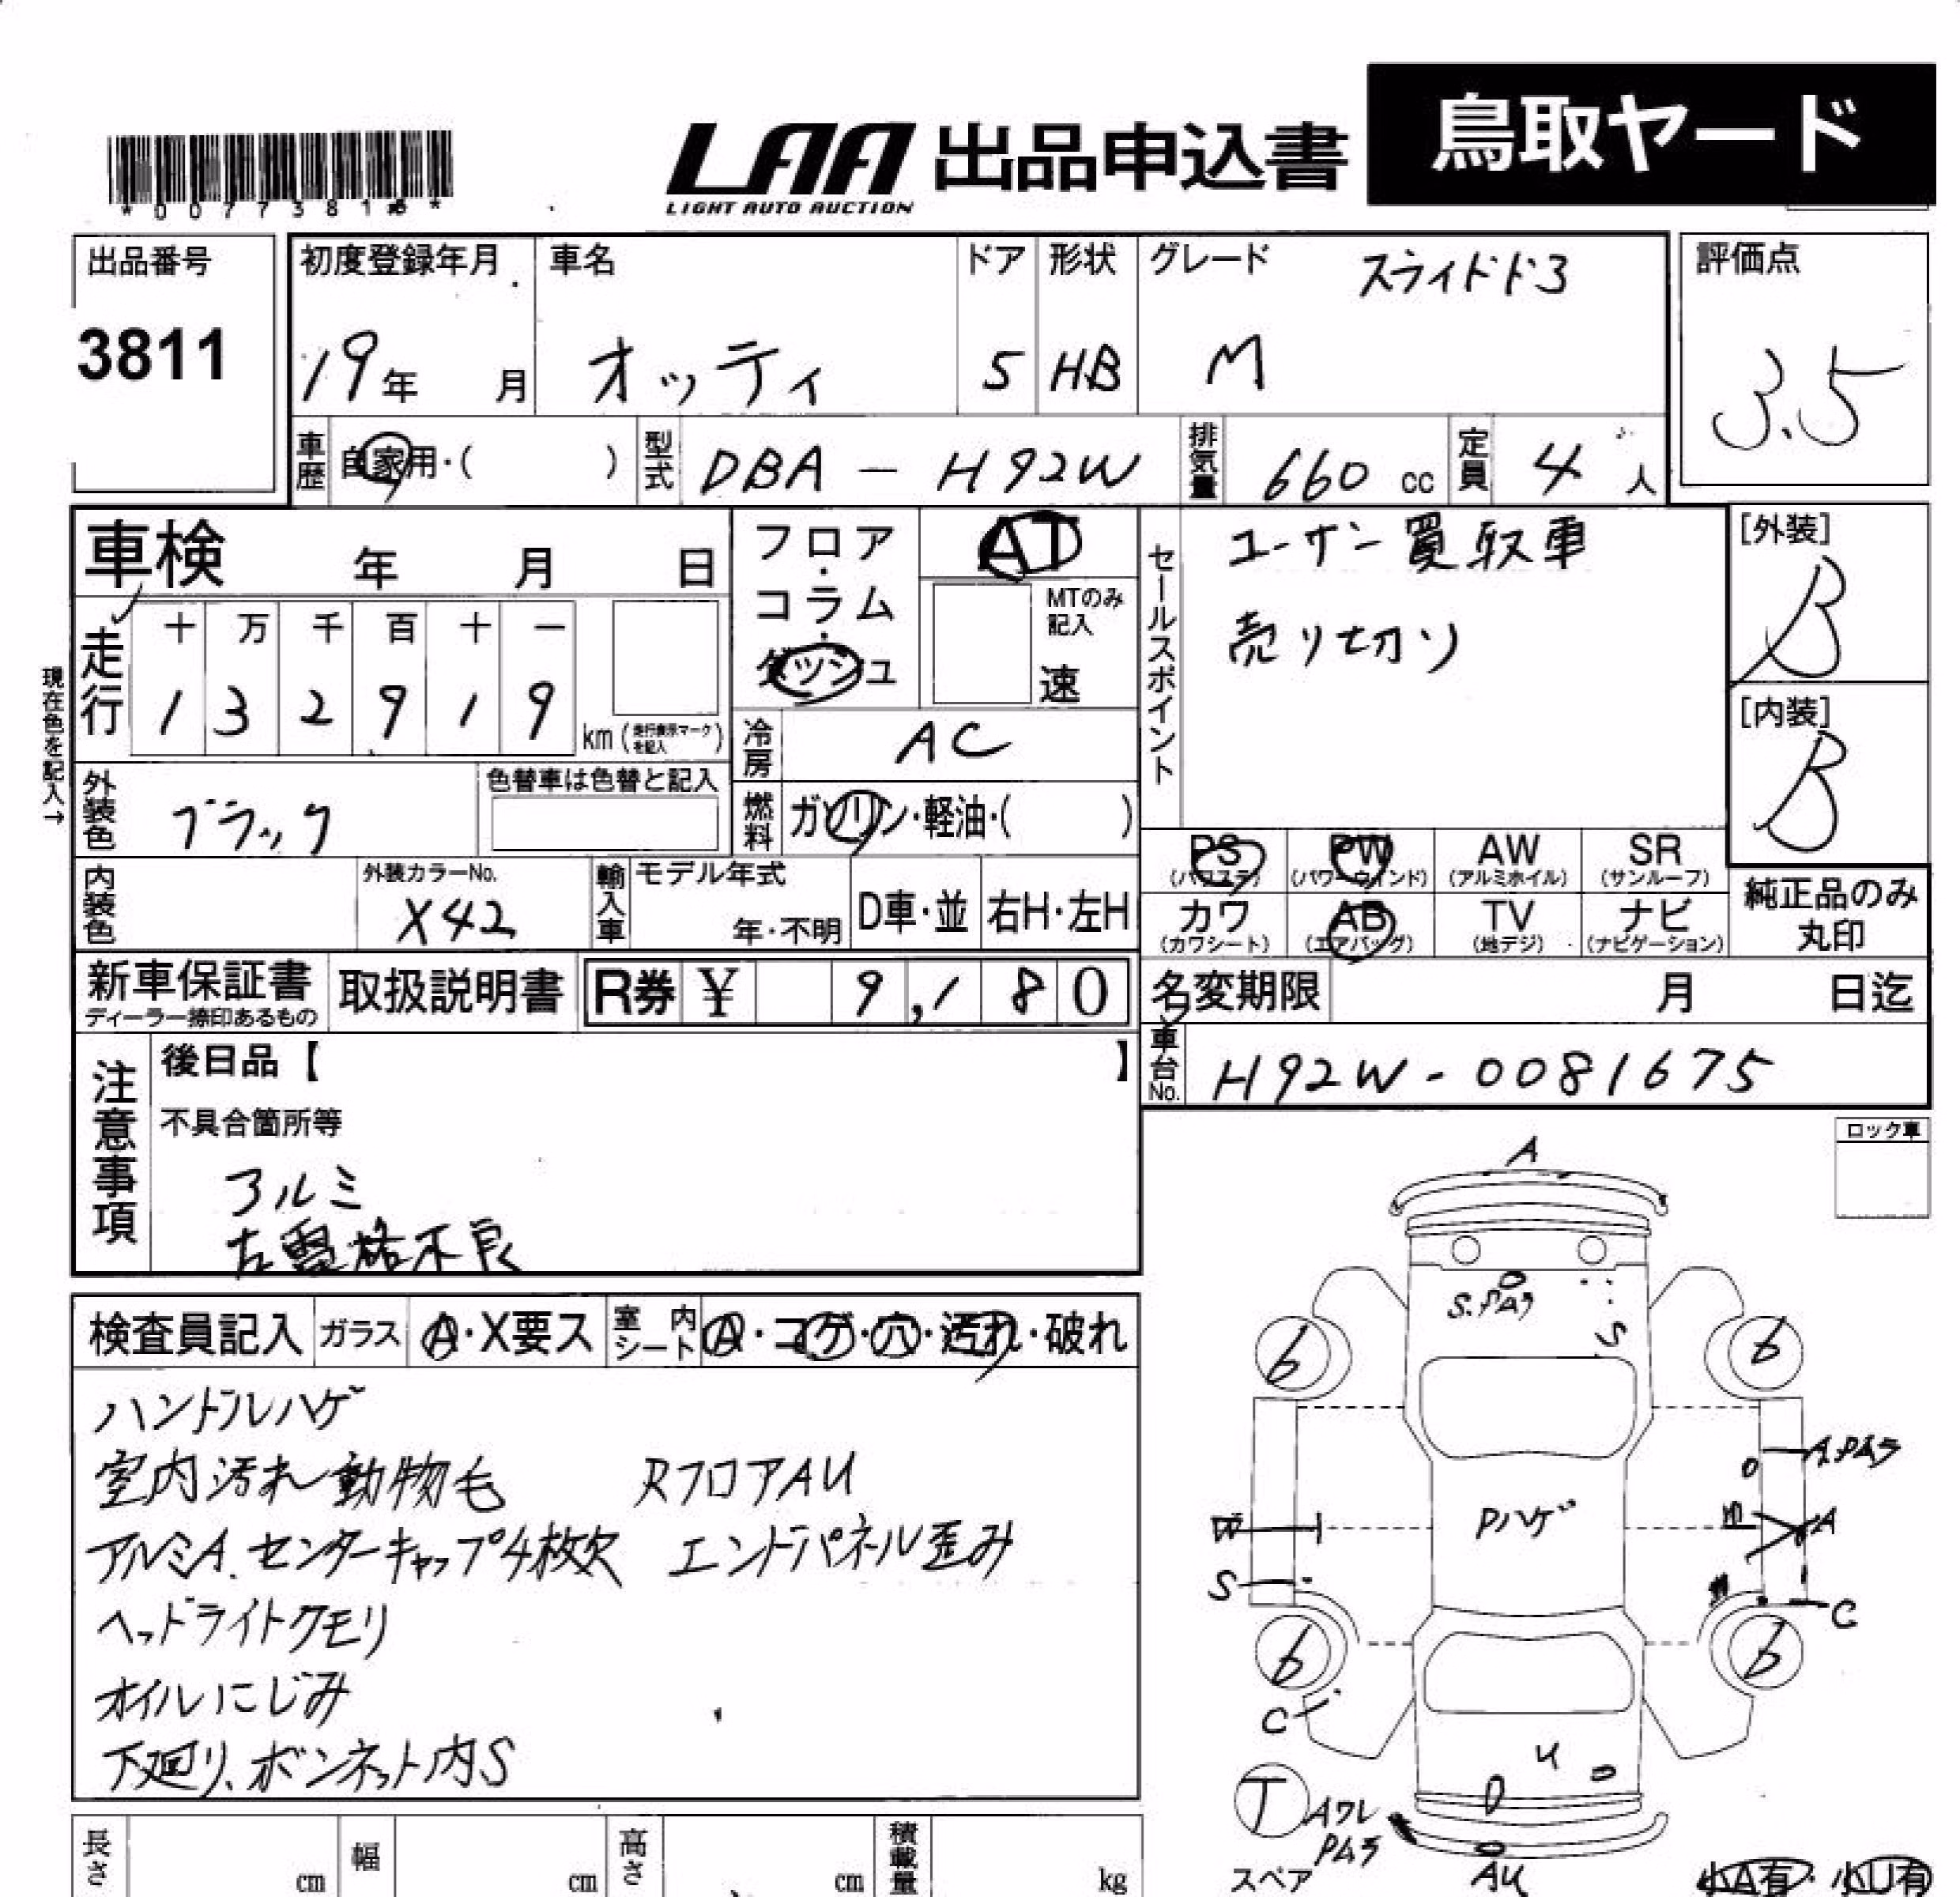 鳥取ヤード
LAA 出品申込書
LIGHT AUTO AUCTION
出品番号
3811
初度登録年月
19年 月
車名
オッティ
ドア
5
形状
HB
グレード
スライドドア
M
評価点
3.5
車歴 自家用・( )
型式 DBA-H92W
排気量 660 cc
定員 4 人
車検 年 月 日
フロア・コラム・ダッシュ
AT
MTのみ記入
速
セールスポイント
ユーザー買取車
売り切り
[外装]
B
[内装]
B
現在色を記入→
走行
十 万 千 百 十 一
1 3 2 9 1 9
km (走行表示マークを記入)
冷房 AC
燃料 ガソリン・軽油・( )
外装色 ブラック
色替車は色替と記入
内装色
外装カラーNo.
X42
輸入車
モデル年式
年・不明
D車・並
右H・左H
PS (パワステ)
PW (パワーウインド)
AW (アルミホイル)
SR (サンルーフ)
カワ (カワシート)
AB (エアバッグ)
TV (地デジ)
ナビ (ナビゲーション)
純正品のみ丸印
新車保証書
ディーラー捺印あるもの
取扱説明書
R券 ¥ 9,180
名変期限 月 日迄
車台No. H92W-0081675
注意事項
後日品【 】
不具合箇所等
アルミ
左電格不良
ロック車
検査員記入
ガラス A・X要ス
室内シート A・コゲ・穴・汚れ・破れ
ハンドルハゲ
室内汚れ動物毛 RフロアAU
アルミA.センターキャップ4枚欠 エンドパネル歪み
ヘッドライトクモリ
オイルにじみ
下廻り、ボンネット内S
A
S
6
6
Pハゲ
A
W
S
C
6
6
C
U
T
Aワレ
AU
スペア
小A有・小U有
長さ cm
幅 cm
高さ cm
積載量 kg